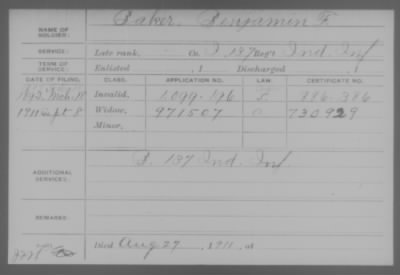 NAME OF SOLDIER: Baker, Benjamin F.
SERVICE: Late rank, Co. I, 137 Reg't Ind. Inf.
TERM OF SERVICE: Enlisted , 1 Discharged , 1
DATE OF FILING. CLASS. APPLICATION NO. LAW. CERTIFICATE NO.
Invalid,
1911 Sept 8 Widow, 971507 730929
Minor,
ADDITIONAL SERVICES: 137 Ind. Inf.
REMARKS:
Died Aug 27, 1911, at